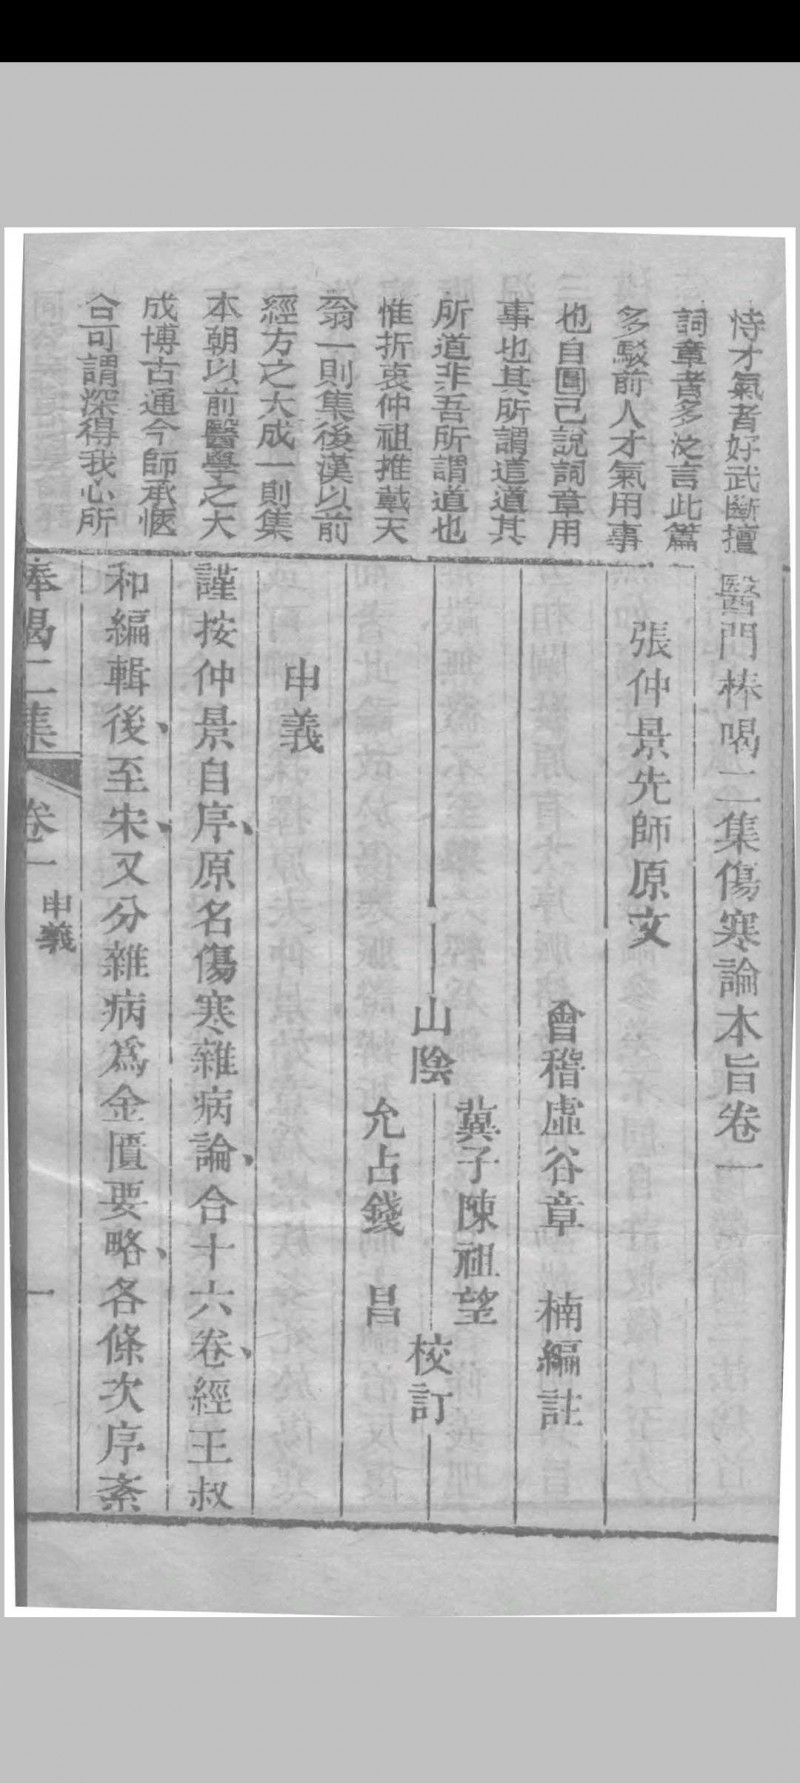 恃才氣者好武斷擅
詞章者多泛言此篇
多駁前人才氣用事
也自圓己說詞章用
事也其所謂道道其
所道非吾所謂道也
惟折衷仲祖推戴天
翁一則集後漢以前
經方之大成一則集
本朝以前醫學之大
成博古通今師承愜
合可謂深得我心所
醫門棒喝二集傷寒論本旨卷一
張仲景先師原文
會稽虛谷章 楠編註
山陰
蓂子陳祖望
允占錢 昌
校訂
申義
謹按仲景自序、原名傷寒雜病論、合十六卷、經王叔
和編輯後、至宋、又分雜病為金匱要略、各條次序紊
棒喝二集 卷一 申義 一